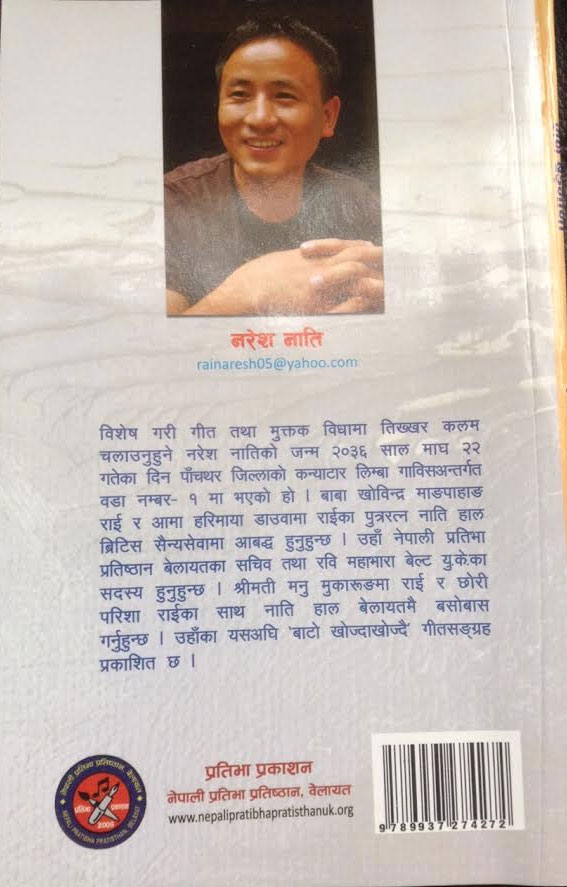 नरेश नाति
rainaresh05@yahoo.com
विशेष गरी गीत तथा मुक्तक विधामा तिख्खर कलम
चलाउनुहुने नरेश नातिको जन्म २०३६ साल माघ २२
गतेका दिन पाँचथर जिल्लाको कन्याटार लिम्बा गाविसअन्तर्गत
वडा नम्बर- १ मा भएको हो । बाबा खोविन्द्र माङपाहाङ
राई र आमा हरिमाया डाउवामा राईका पुत्ररत्न नाति हाल
ब्रिटिस सैन्यसेवामा आबद्ध हुनुहुन्छ । उहाँ नेपाली प्रतिभा
प्रतिष्ठान बेलायतका सचिव तथा रवि महाभारा बेल्ट यु.के.का
सदस्य हुनुहुन्छ । श्रीमती मनु मुकारूङमा राई र छोरी
परिशा राईका साथ नाति हाल बेलायतमै बसोबास
गर्नुहुन्छ । उहाँका यसअघि 'बाटो खोज्दाखोज्दै' गीतसङ्ग्रह
प्रकाशित छ ।
नेपाली प्रतिभा प्रतिष्ठान, बेलायत
प्रतिभा प्रकाशन
2006
NEPALI PRATIBHA PRATISTHAN, BELAYAT
प्रतिभा प्रकाशन
नेपाली प्रतिभा प्रतिष्ठान, वेलायत
www.nepalipratibhapratisthanuk.org
9789937274272